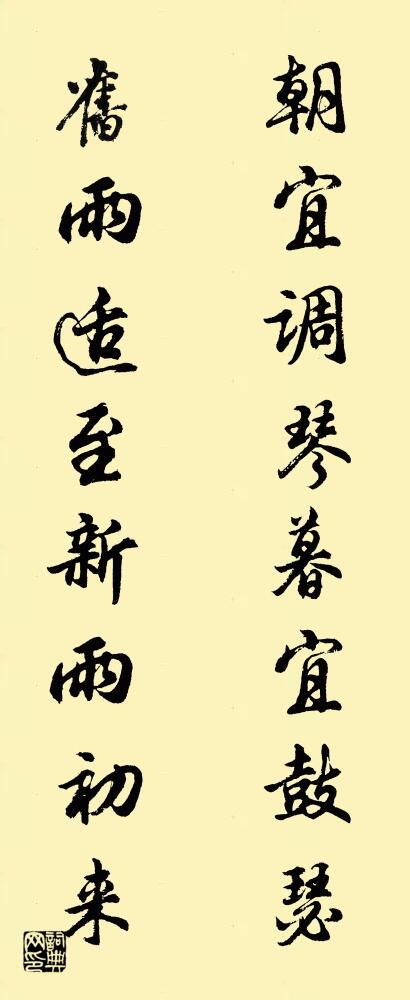 朝宜调琴暮宜鼓瑟
舊雨适至新雨初来
詞典网印